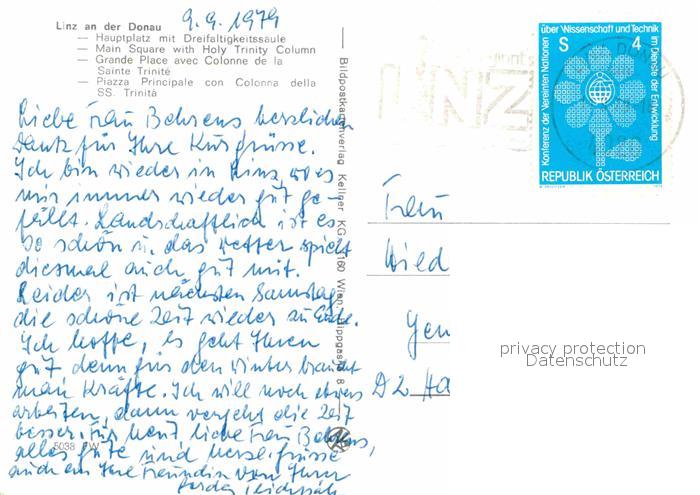 Linz an der Donau 9.9.1979
— Hauptplatz mit Dreifaltigkeitssäule
— Main Square with Holy Trinity Column
— Grande Place avec Colonne de la
Sainte Trinité
— Piazza Principale con Colonna della
SS. Trinità
Liebe Frau Behrens herzlichen
Dank für Ihre Kurgrüsse.
Ich bin wieder in Linz, wo es
mir immer wieder gut ge-
fällt. Landschaftlich ist es
so schön u. das Wetter spielt
diesmal auch gut mit.
Leider ist nächsten Samstag
die schöne Zeit wieder zu Ende.
Ich hoffe, es geht Ihnen
gut denn für den Winter braucht
man Kräfte. Ich will noch etwas
arbeiten, dann vergeht die Zeit
besser. Für heut, liebe Frau Behrens,
alles gute und herzl. grüsse
auch an Ihre Freundin von Ihrer
5038
Bildpostkartenverlag Kellner KG 1160 Wien
Konferenz der Vereinten Nationen
über Wissenschaft und Technik
im Dienste der Entwicklung
S 4
REPUBLIK ÖSTERREICH
LINZ
DONAU
Frau
Wied
Gen
D 2 Ha
privacy protection
Datenschutz